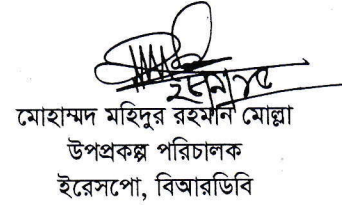 মোহাম্মদ মহিদুর রহমান মোল্লা
উপপ্রকল্প পরিচালক
ইরেসপো, বিআরডিবি